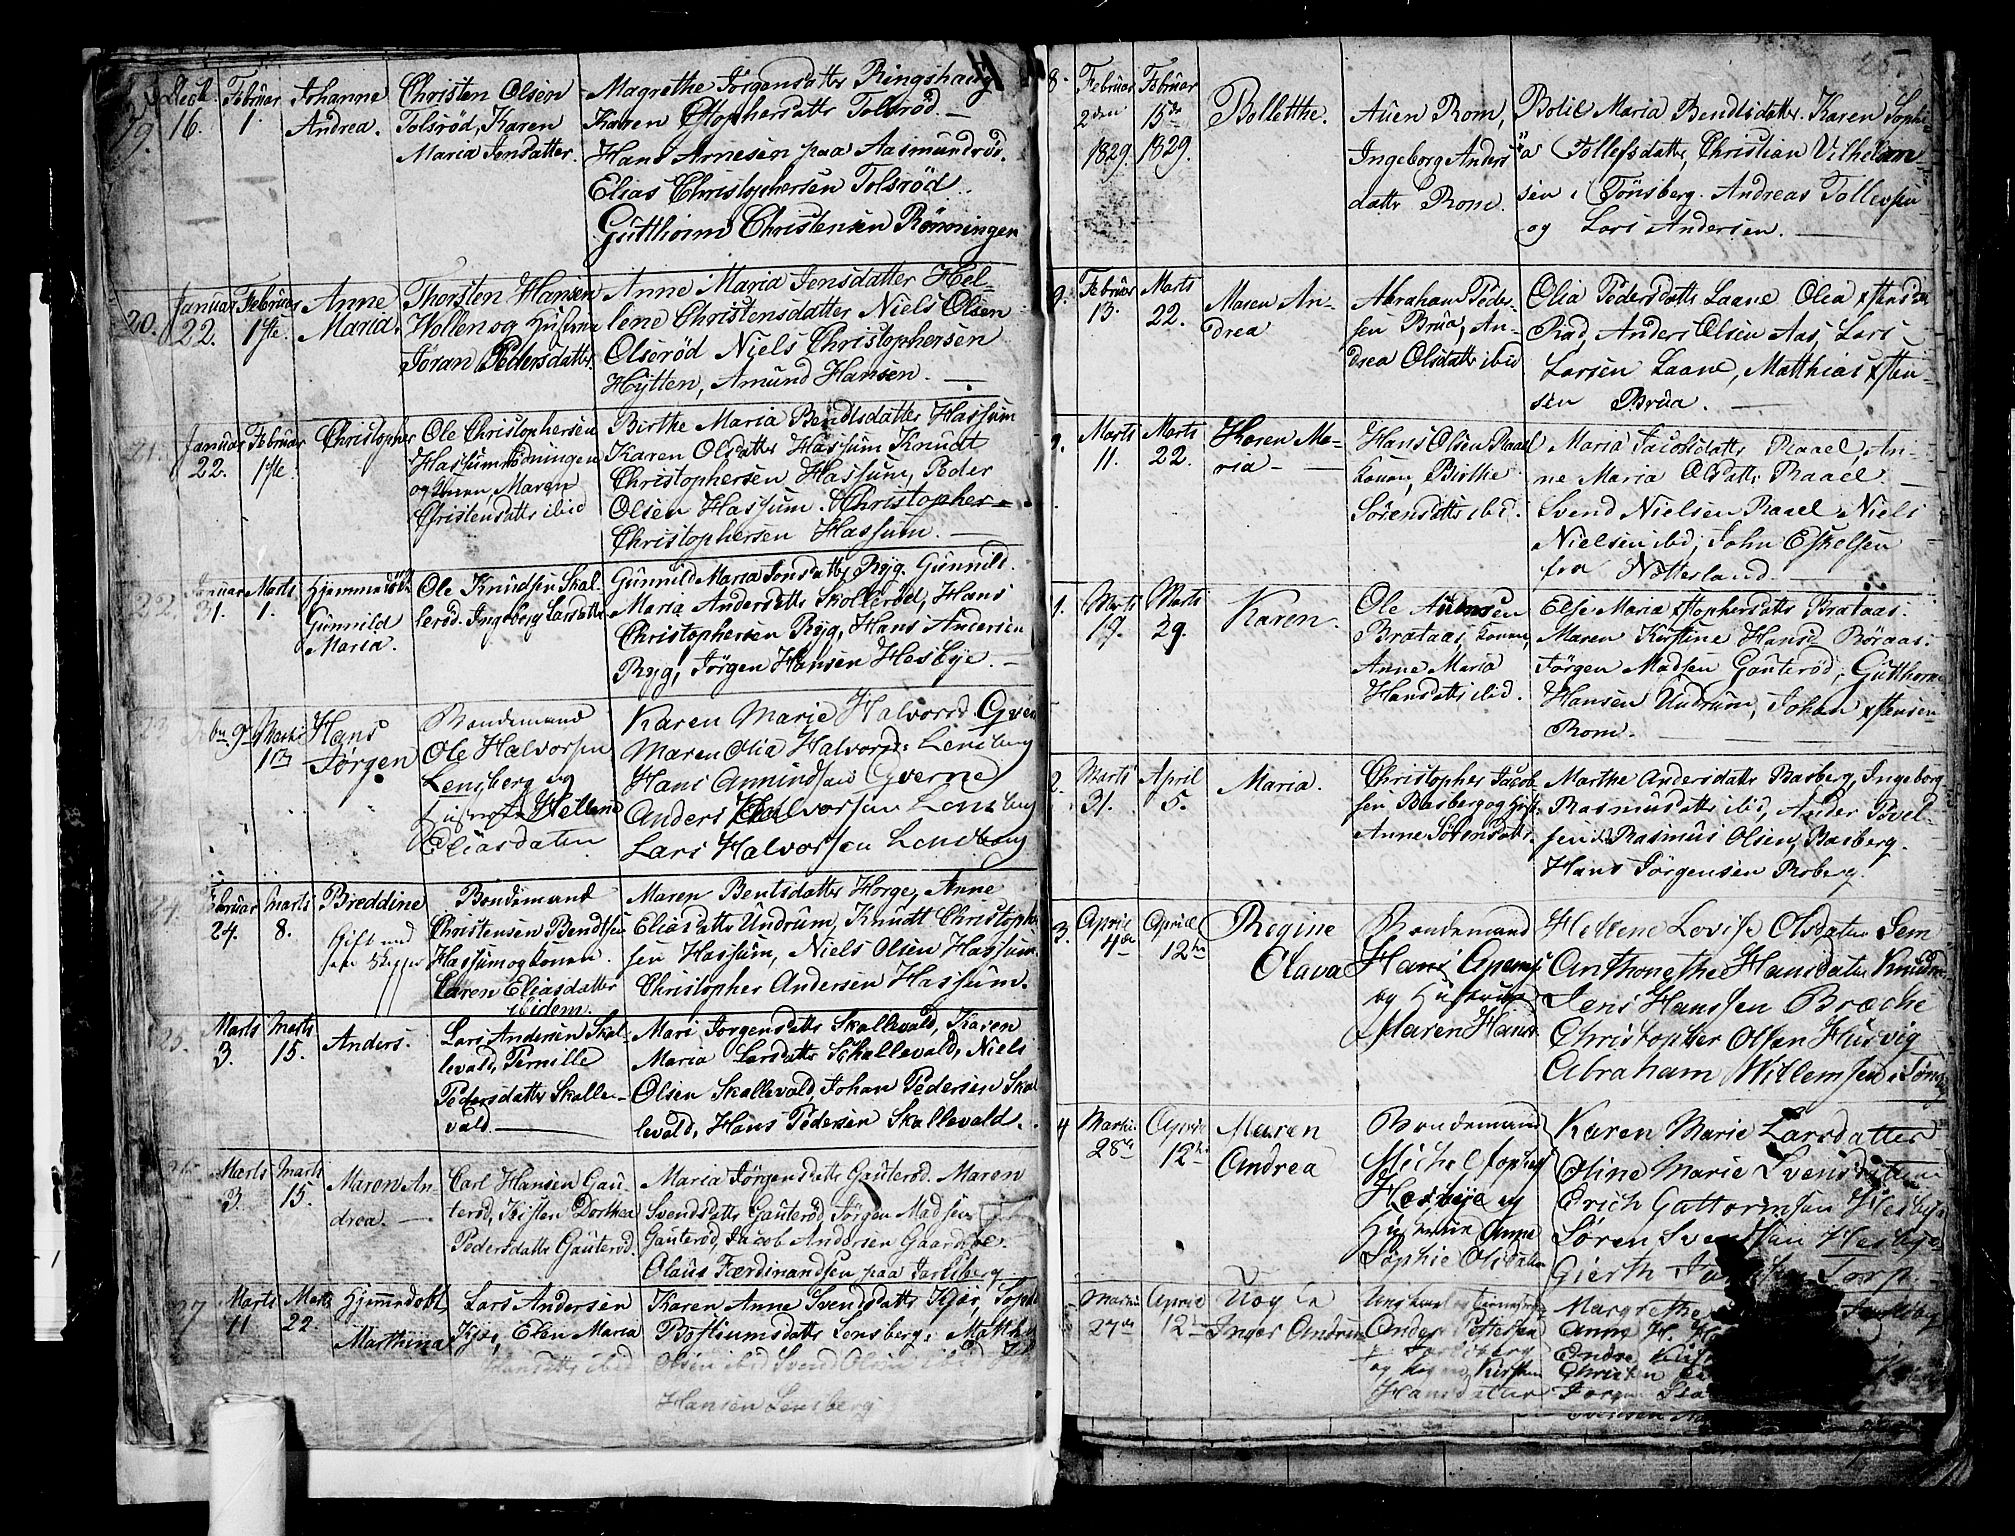 19. Dect 16. Februar 1. Johanne Andrea.
Christen Olsen
Tolsröd, Karen
Maria Jensdatter.
Magrethe Jörgensdatter Ringshaug
Karen Xstophersdatter Tolsröd. —
Hans Arnesen paa Aasmundröd.
Elias Christophersen Tolsröd
Gutthorm Christensen Rönningen
20. Januar 22. Februar 1ste. Anne Maria.
Thorsten Hansen
Wollen og Hustrue
Jöran Pedersdatter.
Anne Maria Jensdatter Hel-
lene Christensdatter Niels Olsen
Olseröd Niels Christophersen
Hÿtten, Amund Hansen. —
21. Januar 22. Februar 1ste. Christopher
Ole Christophersen
Hassumrödningen
og Konen, Maren
Christensdattr ibid
Birthe Maria Bendtsdatter Hassum
Karen Olsdatter Hassum Knudt
Christophersen Hassum, Peder
Olsen Hassum. Christopher
Christophersen Hassum. —
22. Januar 31. Marts 1. Hjemmedöbt
Gunnild
Maria.
Ole Knudsen Skal-
leröd. Ingeborg Larsdatter
Gunnild Maria Jonsdatter Ryg. Gunnild.
Maria Andersdatter Skolleröd, Hans
Christophersen Ryg, Hans Andersen
Ryg, Jörgen Hansen Hesbye. —
23. Hans Jörgen
Bondemand
Ole Halvorsen
Lensberg og
Hellene
Eliasdatter
Karen Marie Halvorsd.
Maren Olia Halvorsd: Lensberg
Hans Amundsen Qverne
Anders Halvorsen Lensberg
Lars Halvorsen Lensberg
24. Februar 24. Marts 8. Breddine
Gift med
Bondemand
Christensen Bendtsen
Hassum og konen.
Caren Eliasdatter
ibidem.
Maren Bentsdatter Horge, Anne
Eliasdatter Undrum, Knudt Christopher-
sen Hassum, Niels Olsen Hassum.
Christopher Andersen Hassum.
25. Marts 3. Marts 15. Anders.
Lars Andersen Skal-
levald, Pernille
Pedersdatter Skalle-
vald
Mari Jörgensdatter Skallevald, Karen
Maria Larsdatter Skallevald, Niels
Olsen Skallevald, Johan Pedersen Skal-
levald, Hans Pedersen Skallevald.
26. Marts 3. Marts 15. Maren An-
drea. —
Carl Hansen Gau-
teröd, Kisten Dorthea
Pedersdatter Gauteröd.
Maria Jörgensdatter Gauteröd. Maren
Svendsdatter Gauteröd, Jörgen Madsen
Gauteröd, Jacob Andersen
Olaus Færdinandsen paa Jarlsberg
27 Marts 11 Marts 22. Hjemmedöbt
Marthina
Lars Andersen
Kjær, Elen Maria
Hansdattr ibid
Karen Anne Svendsdatter Kjær, Sophi
Bostiumsdatter Lensberg,
Olsen ibid Svend Olsen ibid
Hansen Lensberg
25.
8. Februar 2den 1829. Februar 15de 1829. Bolletthe.
Auen Rom,
Ingeborg Anders
datter Rom.
Bolil Maria Bendtsdatter. Karen Sophi-
a Tollefsdatter, Christian Vilhelm
sen i Tönsberg. Andreas Tollevsen
og Lars Andersen. —
9. Februar 13. Marts 22. Maren An-
drea
Abraham Peder-
sen Brua, An-
drea Olsdatter ibid
Olia Pedersdatter Laane Olia
Rad, Anders Olsen Aas, Lars
Larsen Laane, Matthias Xsten-
sen Brua. —
Marts 11. Marts 22. Karen Ma-
ria —
Hans Olsen Raael
konen, Birthe
Sörensdatter ibid.
Maria Jacobsdatter Raael, An-
ne Maria Olsdatter Raael. —
Svend Nielsen Raael Niels
Nielsen ibid, John Eskelsen
fra Nötterland.
1. Marts 19. Marts 29. Karen.
Ole Auensen
Brataas, konen,
Anne Maria
Hansdatter ibid.
Else Maria Xstophersdatter Brataas.
Maren Kirstine Hansd Böraas.
Jörgen Madsen Gauteröd, Gutthorm
Hansen Undrum, Johan Xstensen
Rom. —
2. Marts 31. April 5. Maria.
Christopher Jacob
sen Basberg og Hust
Anne Sörensdatter.
Marthe Andersdatter Basberg, Ingeborg
Rasmusdatter ibid, Ander Povel-
sen ibid Rasmus Olsen, Basberg.
Hans Jörgensen Roberg.
3. April 4de April 12te Regine
Olava
Bondemand
Hans
og Hustrue
Maren Hans
Hellene Lovise Olsdatter Sem
Anthonethe Hansdatter
Jens Hanssen Bræche
Christopher Olsen Husvig
Abraham Willemsen i
4 Martii 28de April 12te Maren
Andrea
Bondemand
Michel
Hesbye og
Hustrue Anne
Sophie Olsdatter
Karen Marie Larsdatter
Oline Marie Svensdatter
Erich Gattormsen Hesbye
Sören Svendsen Hesbye
Gierth Torp
Martii 27de April 12te
Inger Andrea
Anders Pettersen
og
Kirsten
Hansdatter
Margrethe
Anne H.
Endre
Christen
Jörgen
Svensen